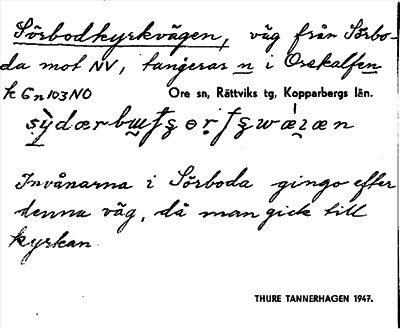 Sörbodkyrkvägen, väg från Sörbo-
da mot NV, tangeras n i Orskalfen
k Gn103NO Ore sn, Rättviks tg, Kopparbergs län.
Invånarna i Sörboda gingo efter
denna väg, då man gick till
kyrkan.
THURE TANNERHAGEN 1947.